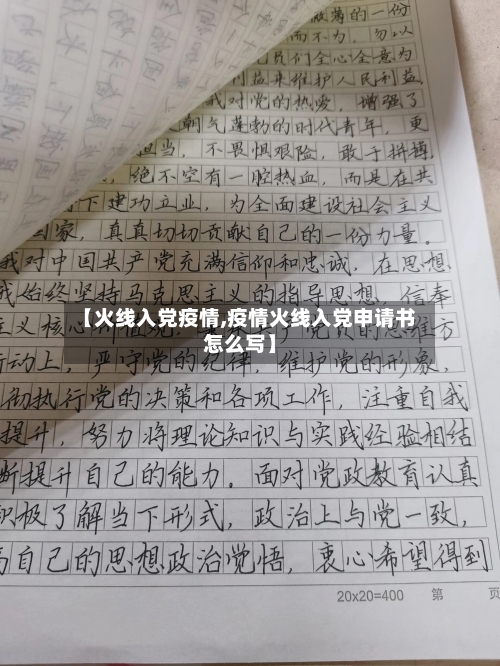 微薄的一份
而不为,勿以
党员们全心全意为
利益来维护人民利益
我对党的热爱,增强了
朝气蓬勃的时代青年,更
担当,不畏惧艰险,敢于拼搏,
绝不空有一腔热血,而是在共
下建功立业,为全面建设社会主义
国家,真真切切贡献自己的一份力量。
我对中国共产党充满信仰和忠诚,在思想
我始终坚持马克思主义的指导思想,信奉
主义核心
【火线入党疫情,疫情火线入党申请书
怎么写】
行动上,严守党的纪律,维护党的形象,
彻执行党的决策和各项工作,注重自我
提升,努力将理论知识与实践经验相结
断提升自己的能力。面对党政教育认真
积极了解当下形式,政治上与党一致,
高自己的思想政治觉悟,衷心希望得到
20x20=400 第 页